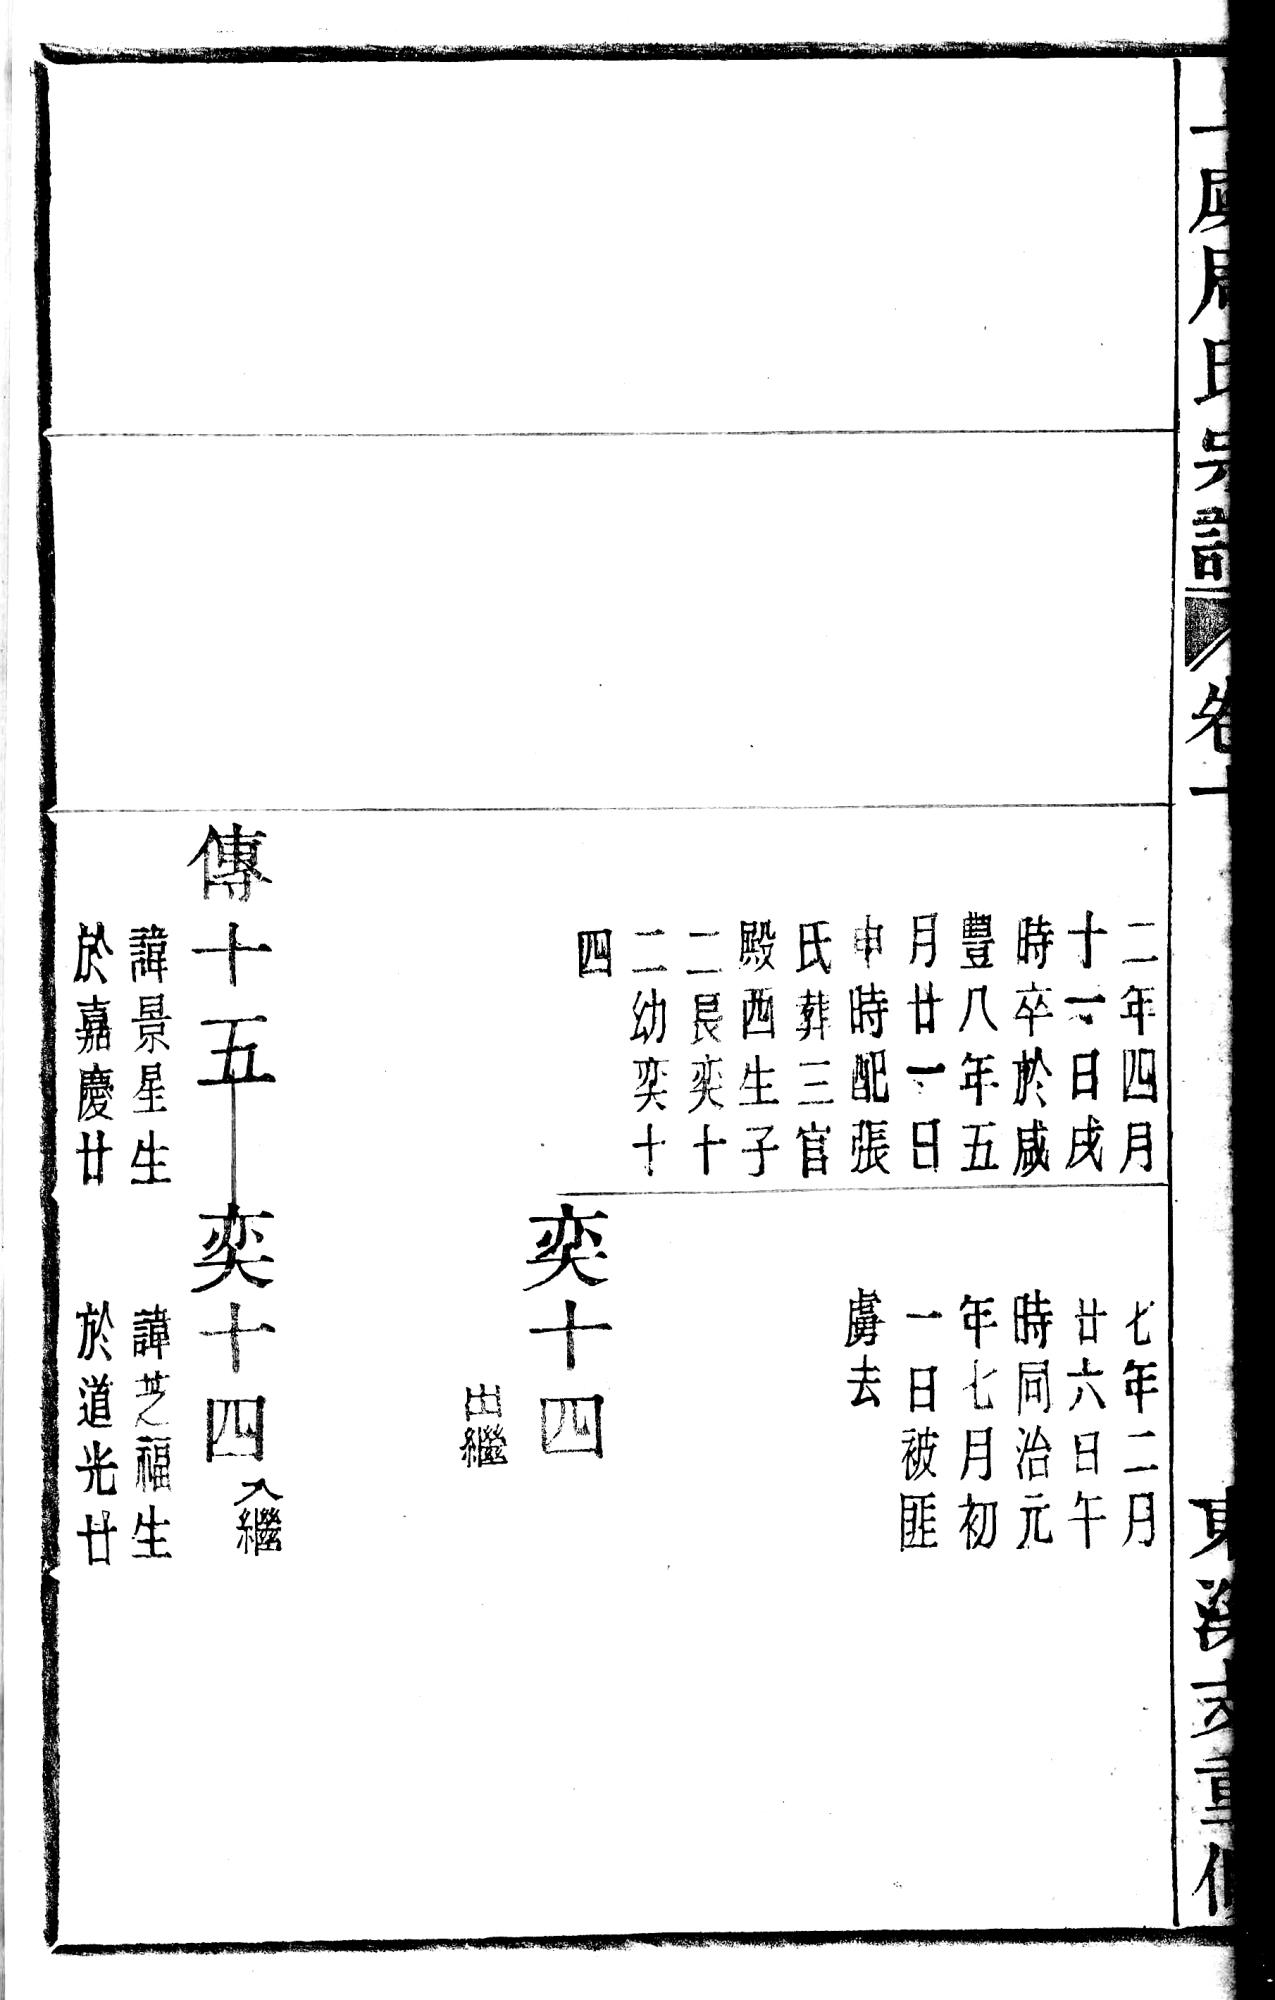 周氏宗譜
卷
重修
二年四月
十一日戌
時卒於咸
豐八年五
月廿一日
申時配張
氏葬三官
殿西生子
二長奕十
二幼奕十
四
七年二月
廿六日午
時同治元
年七月初
一日被匪
虜去
奕十四
出繼
傳十五
諱景星生
於嘉慶廿
奕十四
入繼
諱芝福生
於道光廿